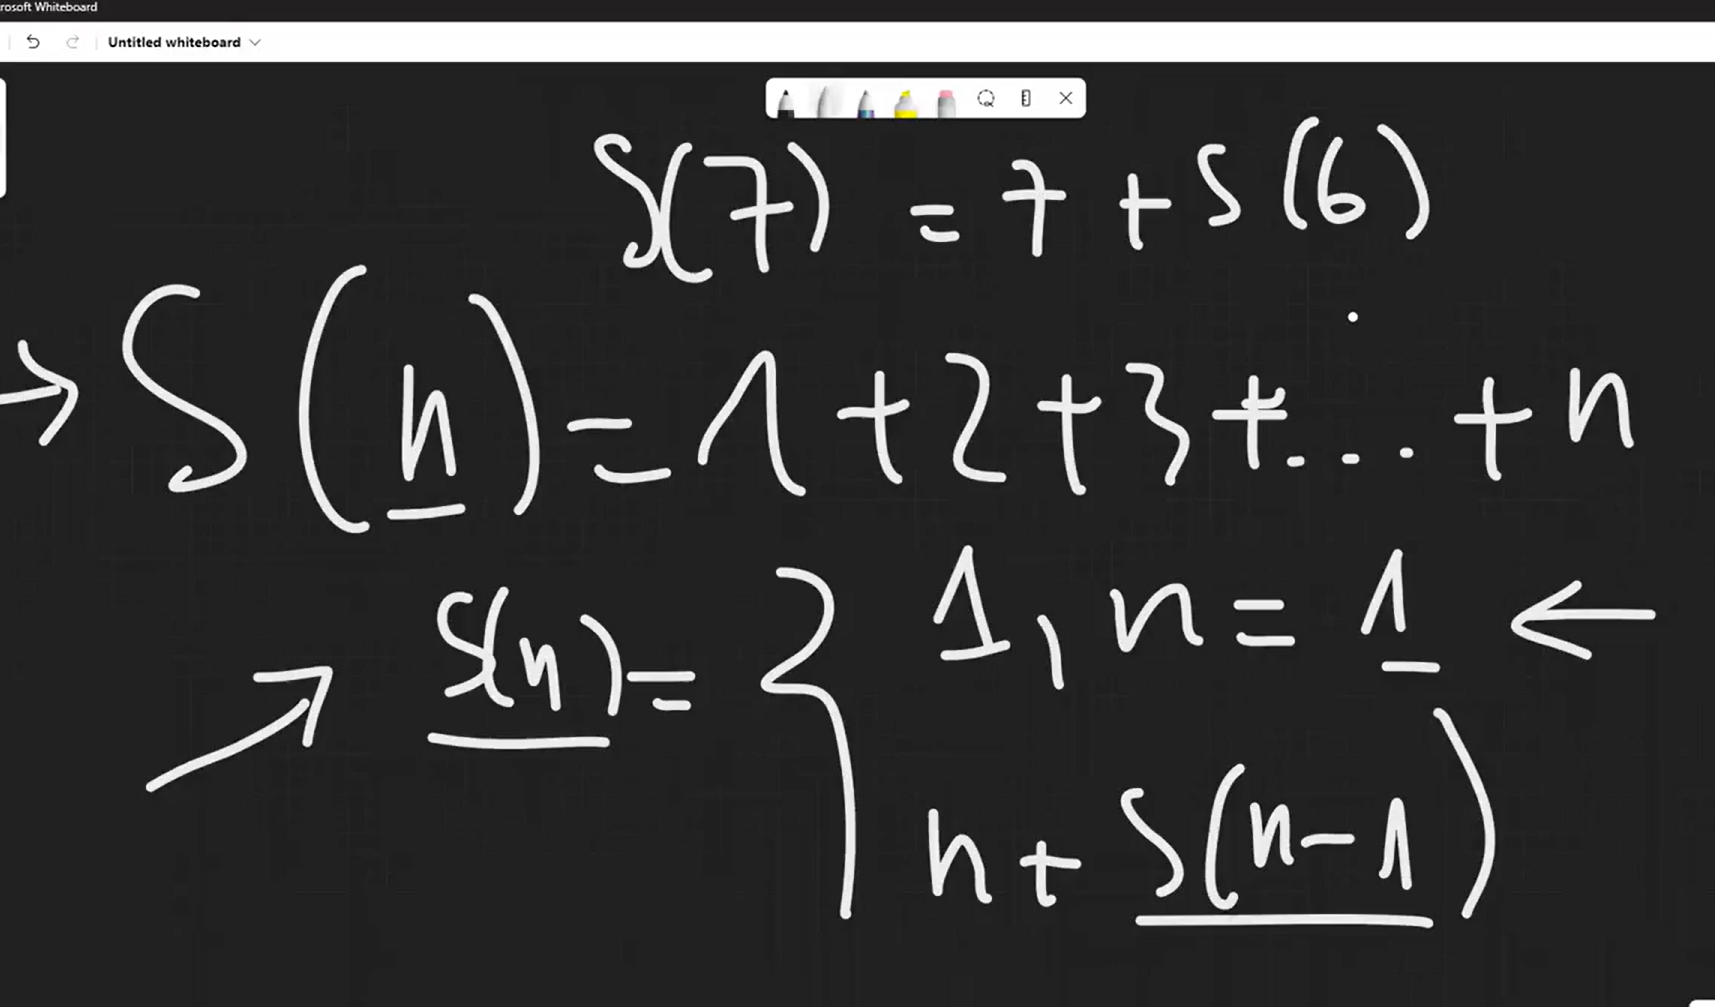 rosoft Whiteboard
Untitled whiteboard
S(7) = 7 + S(6)
S(n) = 1 + 2 + 3 + ... + n
S(n) = { 1, n = 1
n + S(n-1)